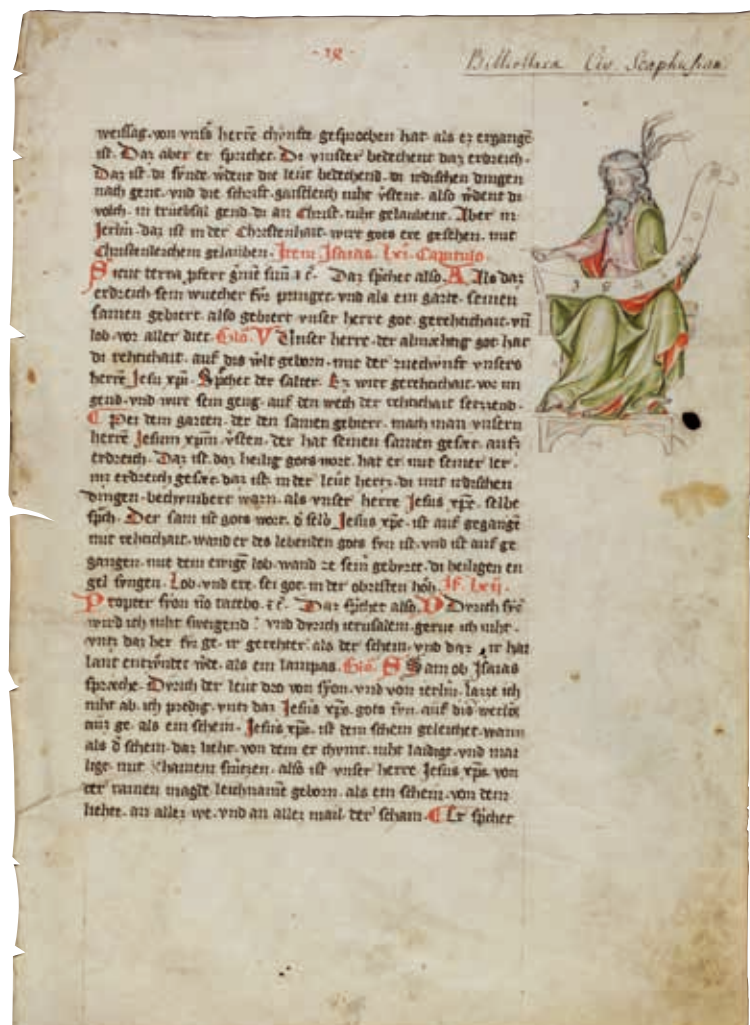 · 19 ·
Bibliotheca Civ. Scaphusian.
weissag. von vnsß herrē chvnfte gesprochen hat. als ez ergangē
ist. Daz aber er sprichet. Di vinster bedechent daz erdreich.
Daz ist. di svnde wdent die leut bedechend. di irdischen dingen
nach gent. vnd die schrift. gaistleich niht vstent. also wdent di
volch. in truebsal gend. di an Christ. niht gelaubent. Aber in
Jerlm̄. daz ist in der Christenhait. wirt gots ere gesehen. mit
christenleichem gelauben. Item Isaias. lxi. Capitulo.
Sicut terra pfert gmē suū ⁊ c̄. Daz sp̄chet also. A Als daz
erdreich sein wuecher fvr pringet. vnd als ein garte. seinen
samen gebiert. also gebiert vnser herre got. gerehtichait. vn̄
lob. vor aller diet. Glo. V Unser herre. der almæhtig got. hat
di rehtichait. auf dis wlt geborn. mit der zuechvnft vnsers
herrē Jesu xp̄i. Sp̄chet der salter. Ez wirt gerehtichait. vor im
gend. vnd wirt sein geng. auf den wech der rehtichait setzzend.
Pei dem garten. der den samen gebiert. mach man vnsern
herrē Jesum xp̄m. vsten. der hat seinen samen gesæt. aufz
erdreich. Daz ist. daz heilig gots wort. hat er mit seiner ler.
inz erdreich gesæt. daz ist. in der leut hertz. di mit irdischen
dingen. bechvmbert warn. als vnser herre Jesus xp̄c. selbe
sp̄ch. Der sam ist gots wort. d̄ selb Jesus xp̄c. ist auf gegangē
mit rehtichait. wand er des lebenden gots svn ist. vnd ist auf ge
gangen. mit dem ewigē lob. wand ze sein gebvrt. di heiligen en
gel svngen. Lob. vnd ere. sei got. in der obristen hoh. Is. lxij.
Propter syon nō tacebo. ⁊ c̄. Daz sp̄chet also. D Dvrich syō
wird ich niht sweigend. vnd dvrich ierusalem. gerue ich niht.
vntz daz her fvr ge. ir gerehter. als der schein. vnd daz ir hai
lant entzvntet wde. als ein lampas. Glo. S Sam ob Isaias
spræche. Dvrich der leut dro von syon. vnd von ierlm̄. lazze ich
niht ab. ich predig. vntz daz Jesus xp̄c. gots svn. auf dis werlt
auz ge. als ein schein. Jesus xp̄c. ist dem schein geleichet. wann
als d̄ schein. daz lieht. von dem er chvmt. niht laidigt. vnd mai
ligt. mit chainem smitzen. also ist vnser herre Jesus xp̄c. von
der rainen magde leichname geborn. als ein schein. von dem
liehet. an allez we. vnd an allez mail. der scham. Er sp̄chet